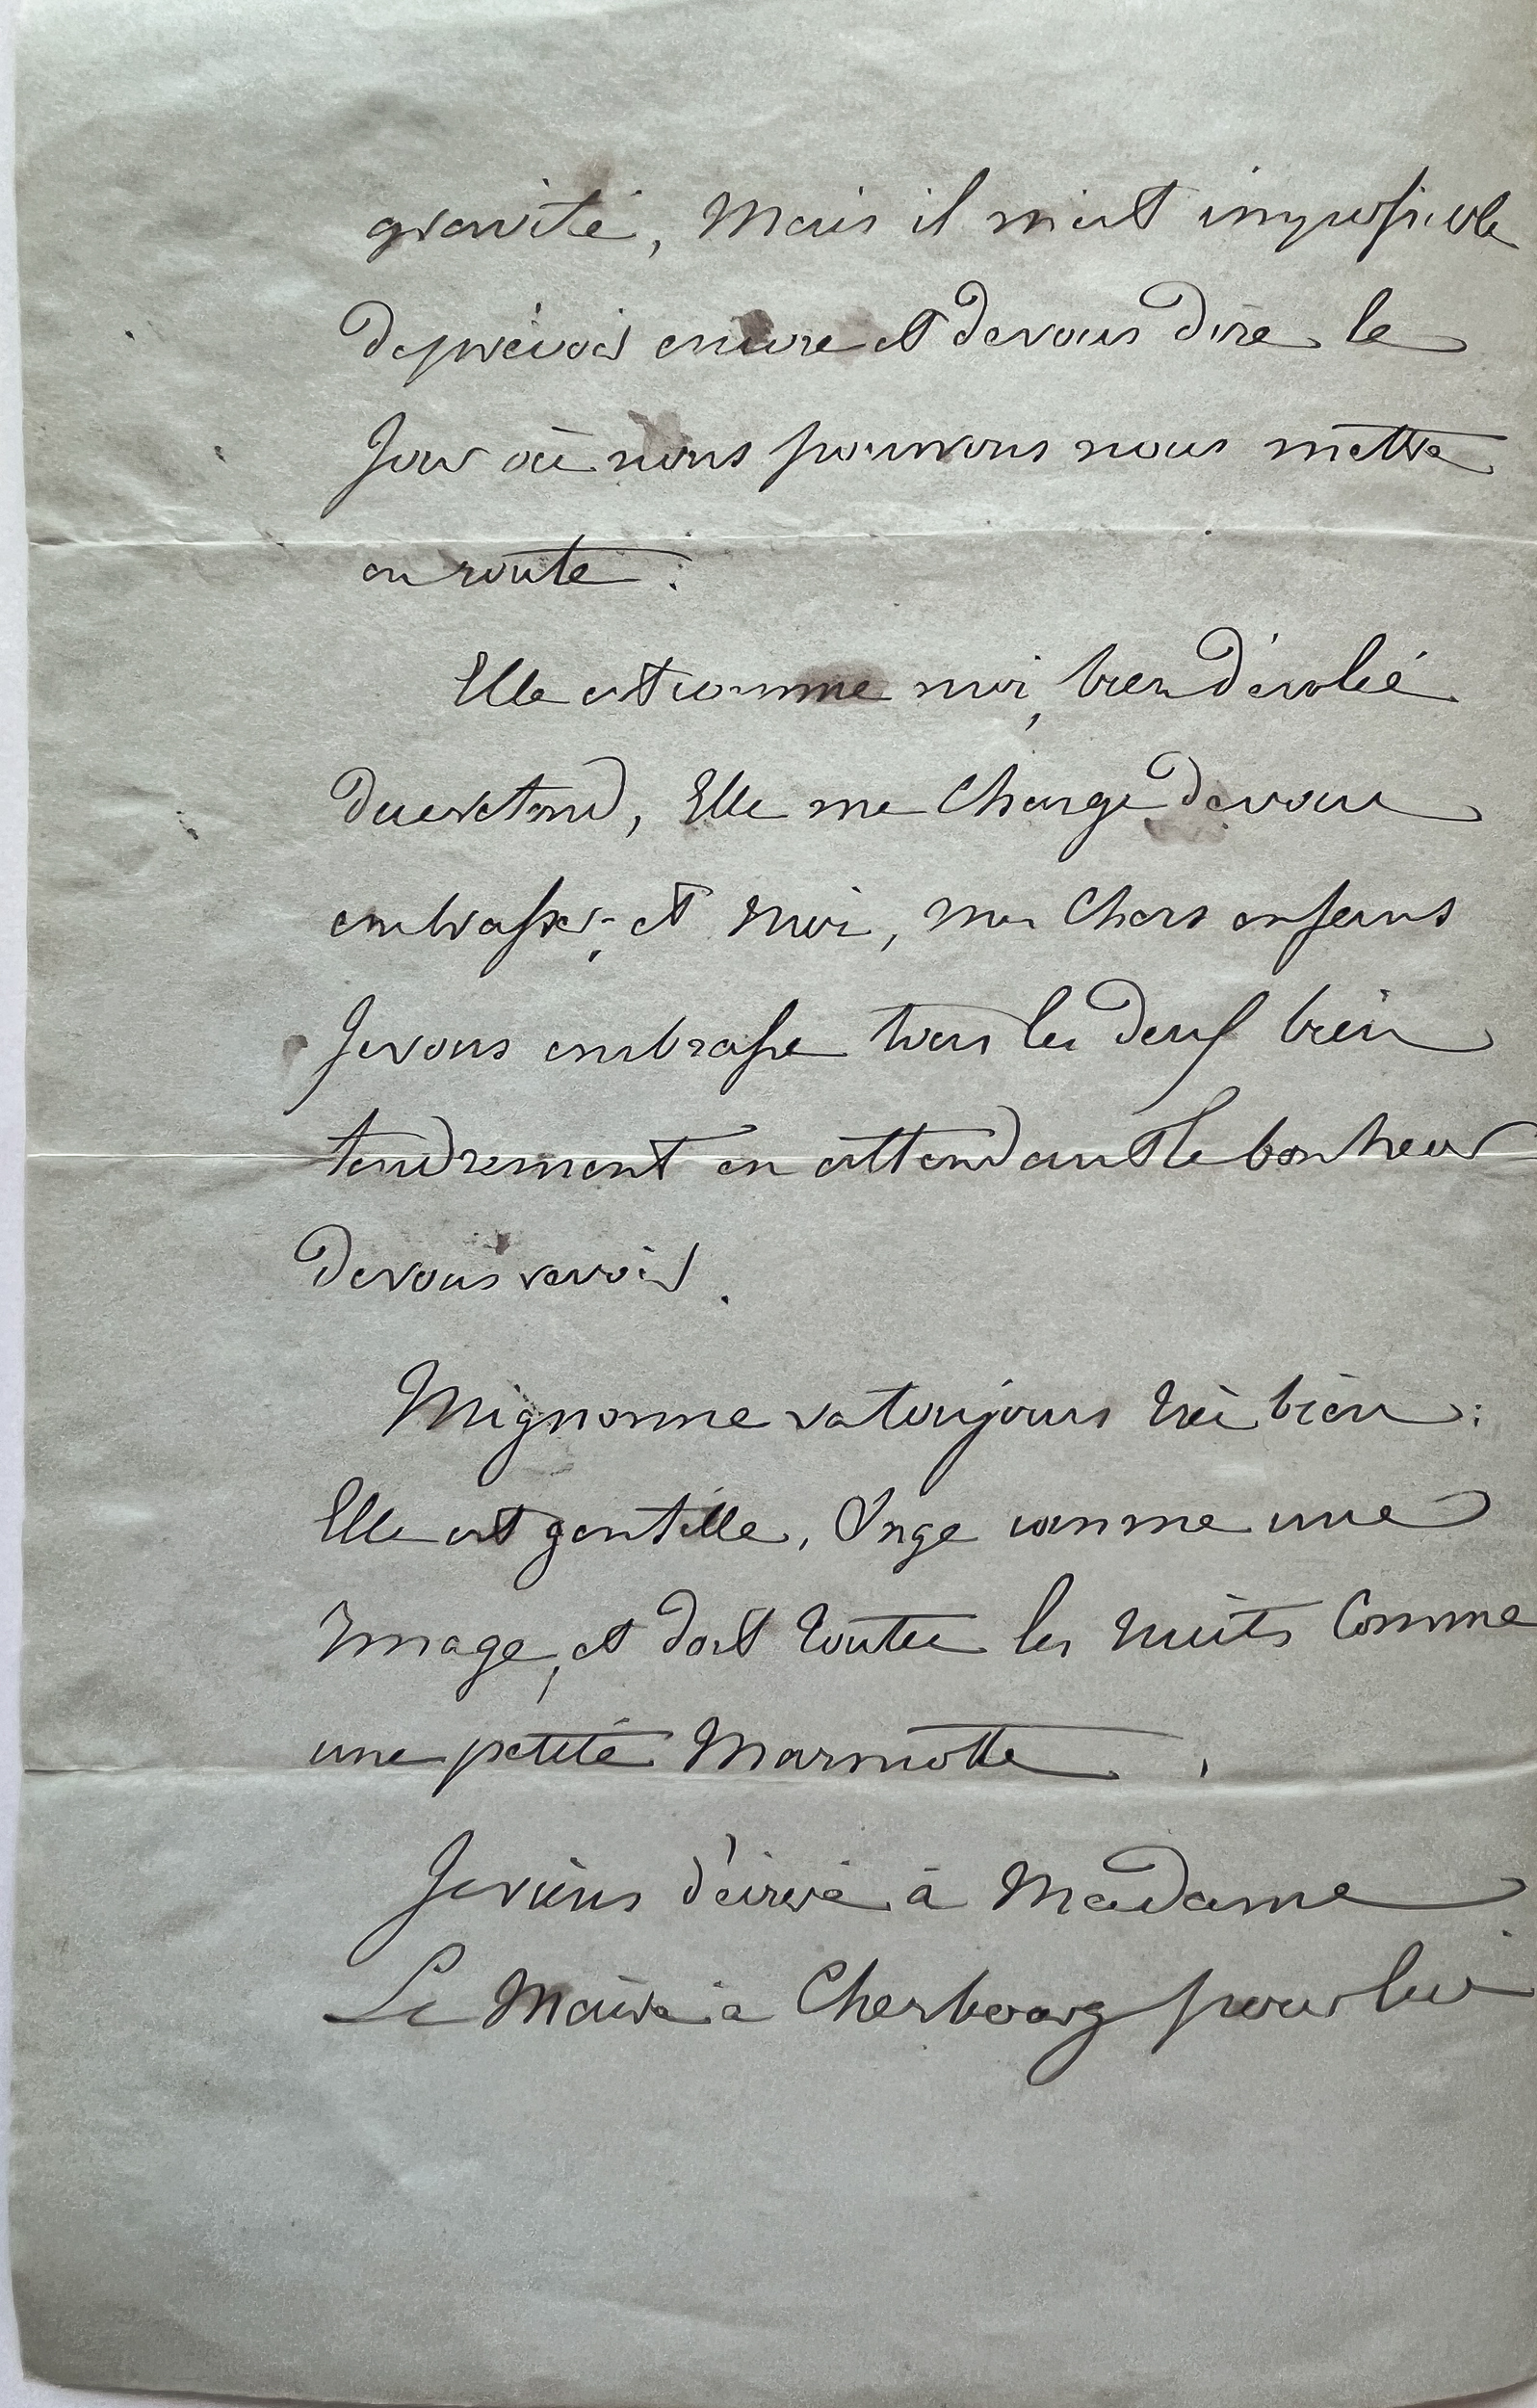 gravité, Mais il m'est impossible
de prévoir encore et de vous dire le
Jour où nous pourrons nous mettre
en route.
Elle est comme moi, bien désolée
de ce retard, Elle me Charge de vous
embrasser; et Moi, mes Chers enfans
Je vous embrasse tous les deux bien
tendrement en attendant le bonheur
de vous revoir.
Mignonne va toujours très bien:
Elle est gentille, Sage comme une
Image, et dort toutes les Nuits Comme
une petite Marmotte.
Je viens d'écrire à Madame
Le Maire à Cherbourg pour lui